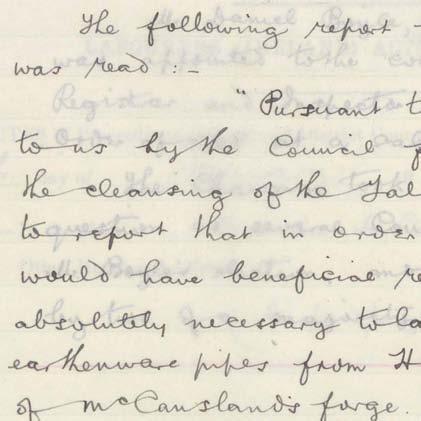 The following report -
was read :-
"Pursuant t
to us by the Council f
the cleansing of the Fal
to report that in order
would have beneficial re
absolutely necessary to la
earthenware pipes from H
of McCausland's forge.